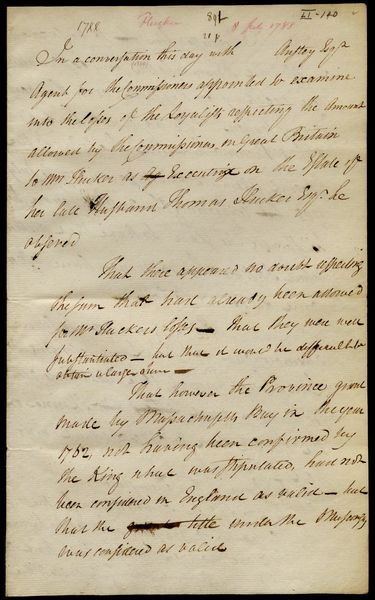 1788 Flucker 8 July 1788 II-140
In a conversation this day with Anstey Esqr
Agent for the Commissioners appointed to examine
into the losses of the Loyalists respecting the amount
allowed by the Commissioners in Great Britain
to Mrs Flucker as Executrix on the Estate of
her late Husband Thomas Flucker Esqr. he
observed
That there appeared no doubt respecting
the sum that had already been allowed
for Mr Fluckers losses — That they were well
substantiated — but that it would be difficult to
obtain a large sum —
That however the Province grant
made by Massachusetts Bay in the year
1762, not having been confirmed by
the King what was stipulated, had not
been considered in England as valid — but
that the title under the
was considered as valid